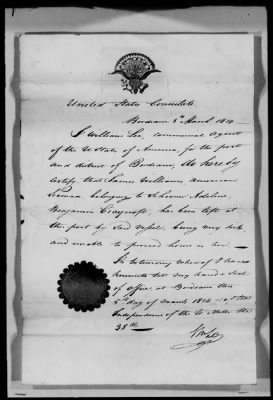 United States Consulate
Bordeaux 5th March 1814
I William Lee, commercial agent
of the U States of America, for the port
and district of Bordeaux, do hereby
certify, that James Williams, american
Seaman, belonging to Schooner Adeline,
Benjamin Craycroft, has been left at
this port by said Vessel, being very sick
and unable to proceed home in her.
In testimony whereof I have
hereunto set my hand & Seal
of office, at Bordeaux this
5th day of March 1814 & of the
Independence of the U. States the
38th
Wm Lee